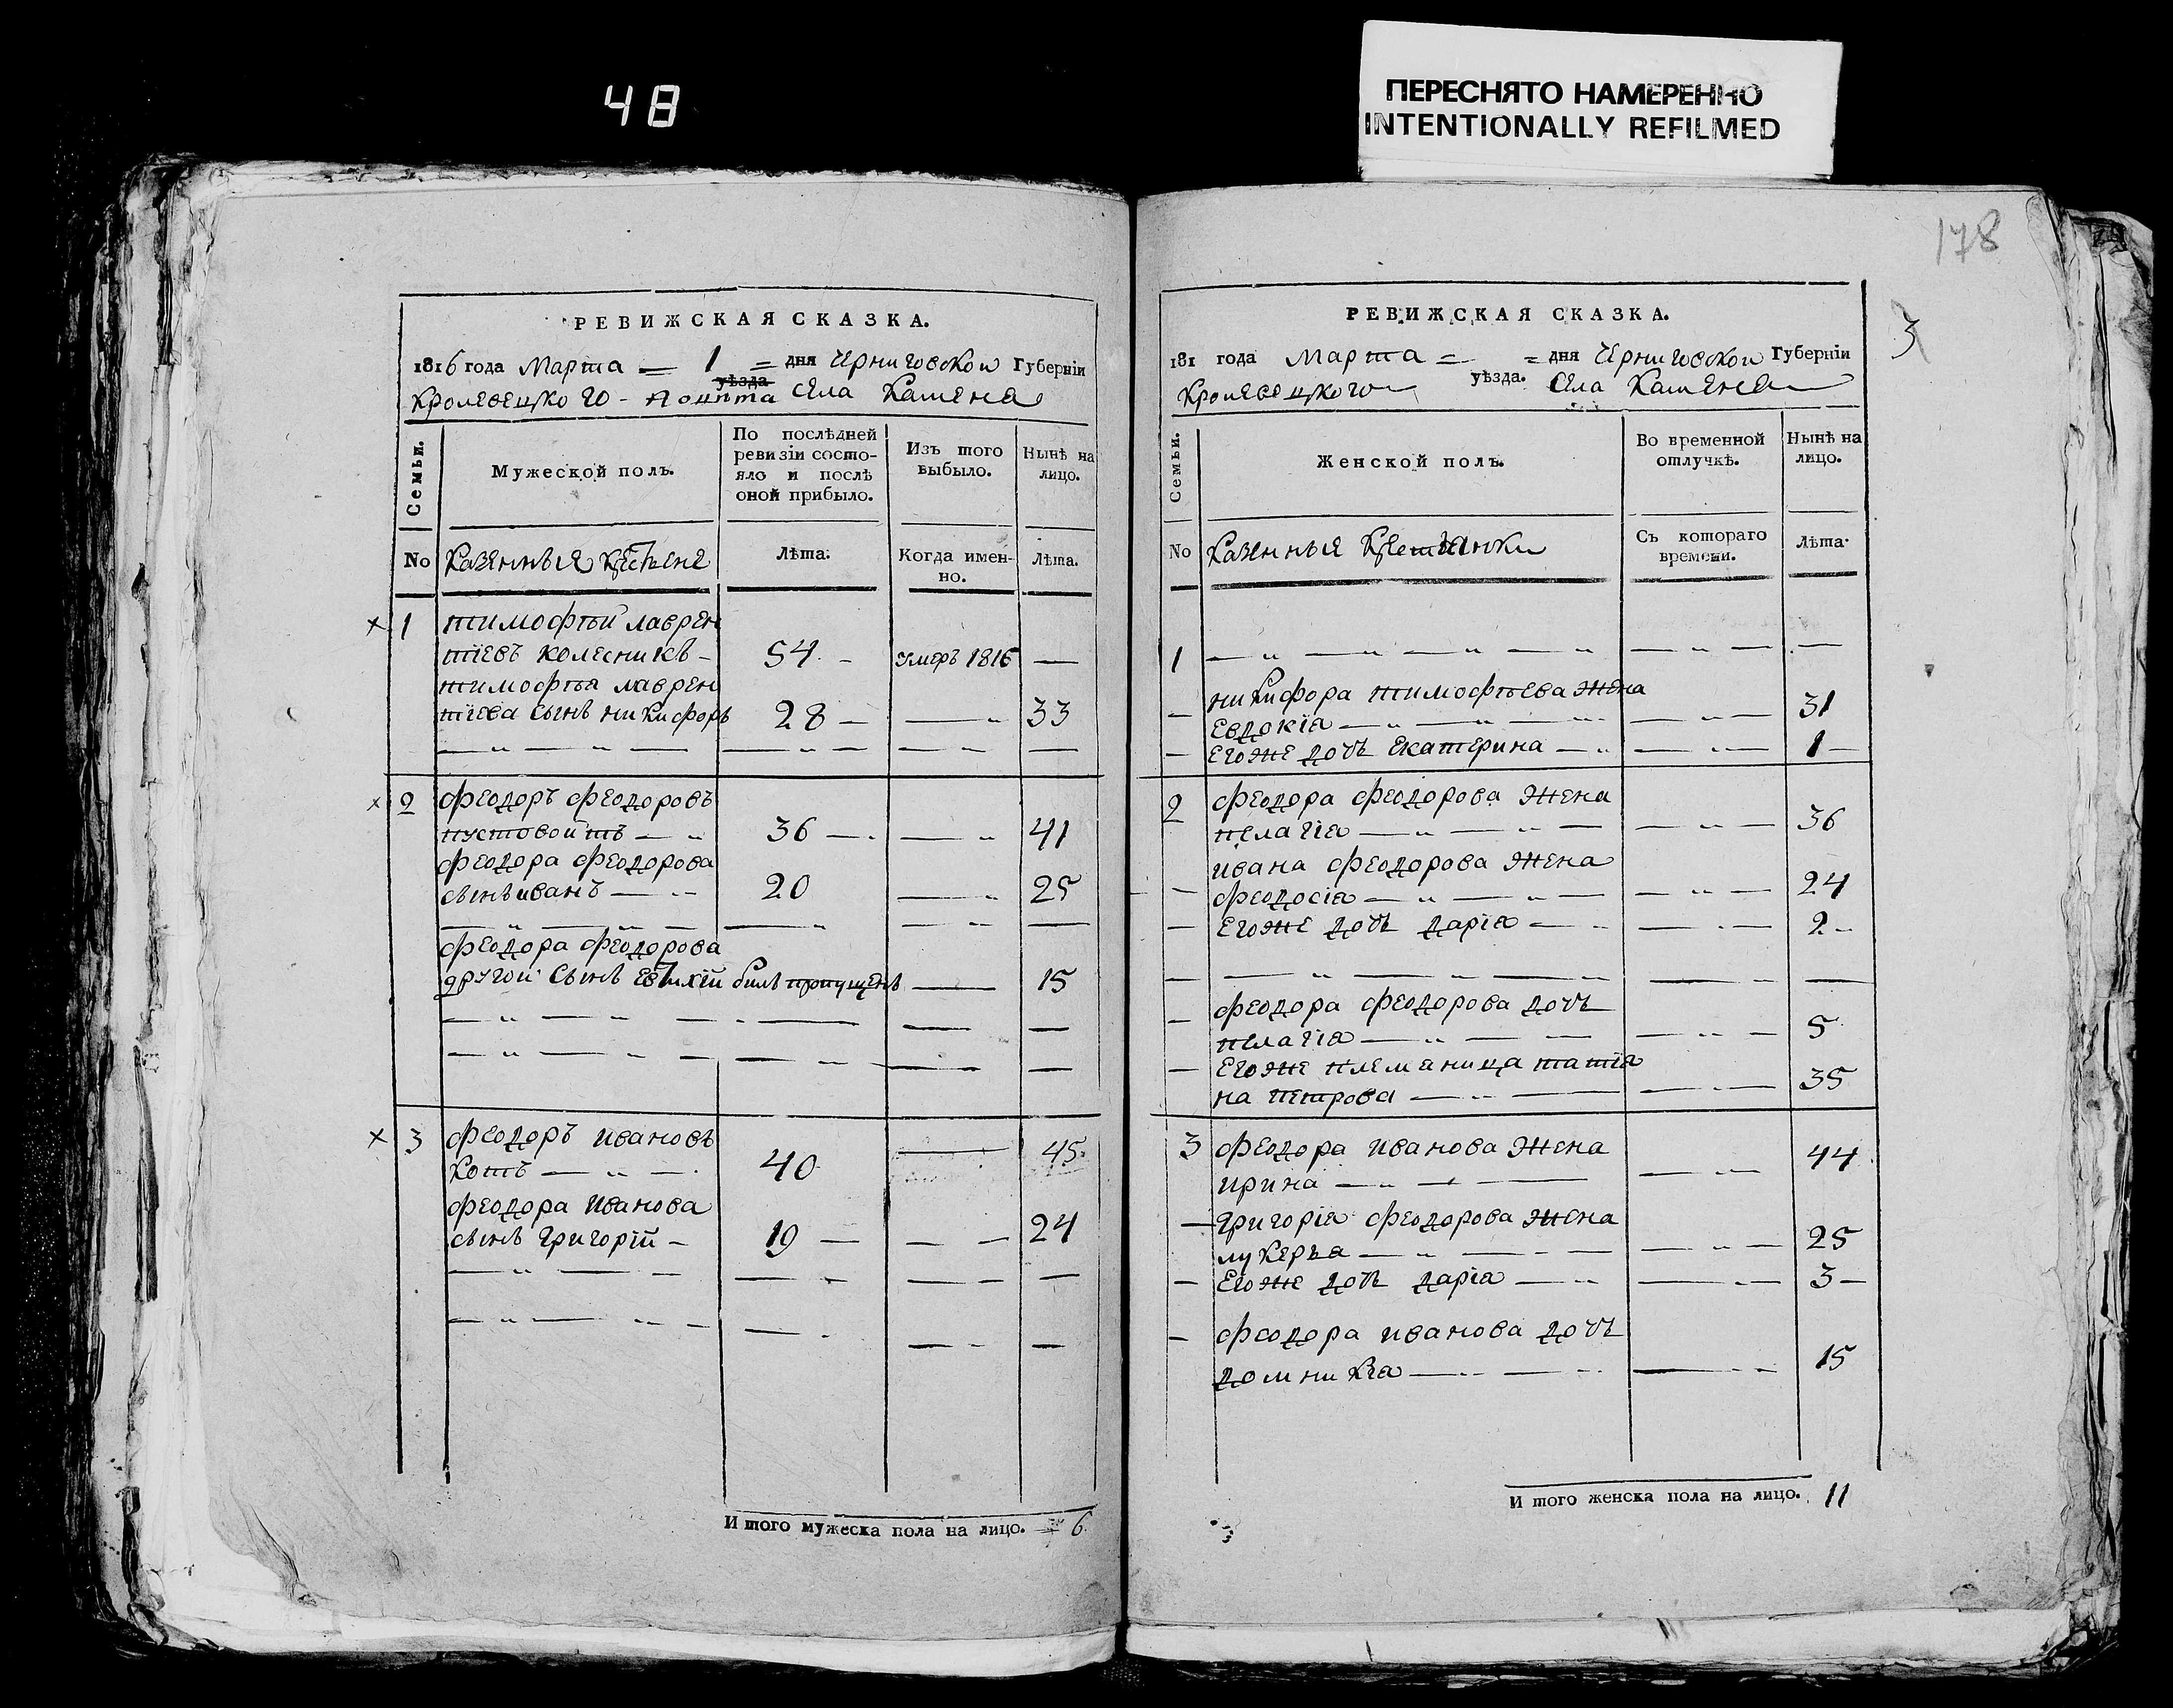 48
ПЕРЕСНЯТО НАМЕРЕННО
INTENTIONALLY REFILMED
178
3
РЕВИЖСКАЯ СКАЗКА.
1816 года Марта — 1 = дня Черниговской Губерніи
уѣзда
Кролевецкого - Повѣта Села Каменя
Семьи.
Мужеской полъ.
По послѣдней
ревизіи состо-
яло и послѣ
оной прибыло.
Изъ того
выбыло.
Нынѣ на
лицо.
No
Казенные
Лѣта.
Когда имен-
но.
Лѣта.
1 тимофѣй лаврен
тіевъ колесникъ — 54 — умеръ 1815 —
тимофѣя лаврен
тіева сынъ никифоръ 28 — — „ 33
2 феодоръ феодоровъ
пустовойтъ — „ 36 — — „ 41
феодора феодорова
сынъ иванъ — 20 — „ 25
феодора феодорова
другой сынъ Евтихій билъ пропущенъ — 15
3 феодоръ ивановъ
котъ — „ — 40 — 45
феодора иванова
сынъ григорій — 19 — — — 24
И того мужеска пола на лицо. 6
РЕВИЖСКАЯ СКАЗКА.
181 года Марта = = дня Черниговской Губерніи
Кролевецкого уѣзда. Села Каменя
Семьи.
Женской полъ.
Во временной
отлучкѣ.
Нынѣ на
лицо.
No
Казенные
Съ котораго
времени.
Лѣта.
1 — „ — „ — „ — „ — „ — —
— никифора тимофѣева жена
Евдокія — „ — „ — — „ — 31
— Егоже дочь Екатерина — „ — „ — 1 —
2 феодора феодорова жена
пелагія — „ — „ — — „ — 36
— ивана феодорова жена
феодосія — „ — „ — — „ — 24
— Егоже дочь дарія — — „ — 2 —
— феодора феодорова дочь
пелагія — „ — — — „ — 5
— Егоже племаница татія
на петрова — „ — — „ — 35
3 феодора иванова жена
ирина — „ — — — „ — 44
— григорія феодорова жена
лукерья — „ — — — „ — 25
— Егоже дочь дарія — „ — „ — 3 —
— феодора иванова дочь
домникіа — „ — „ — „ 15
И того женска пола на лицо. 11